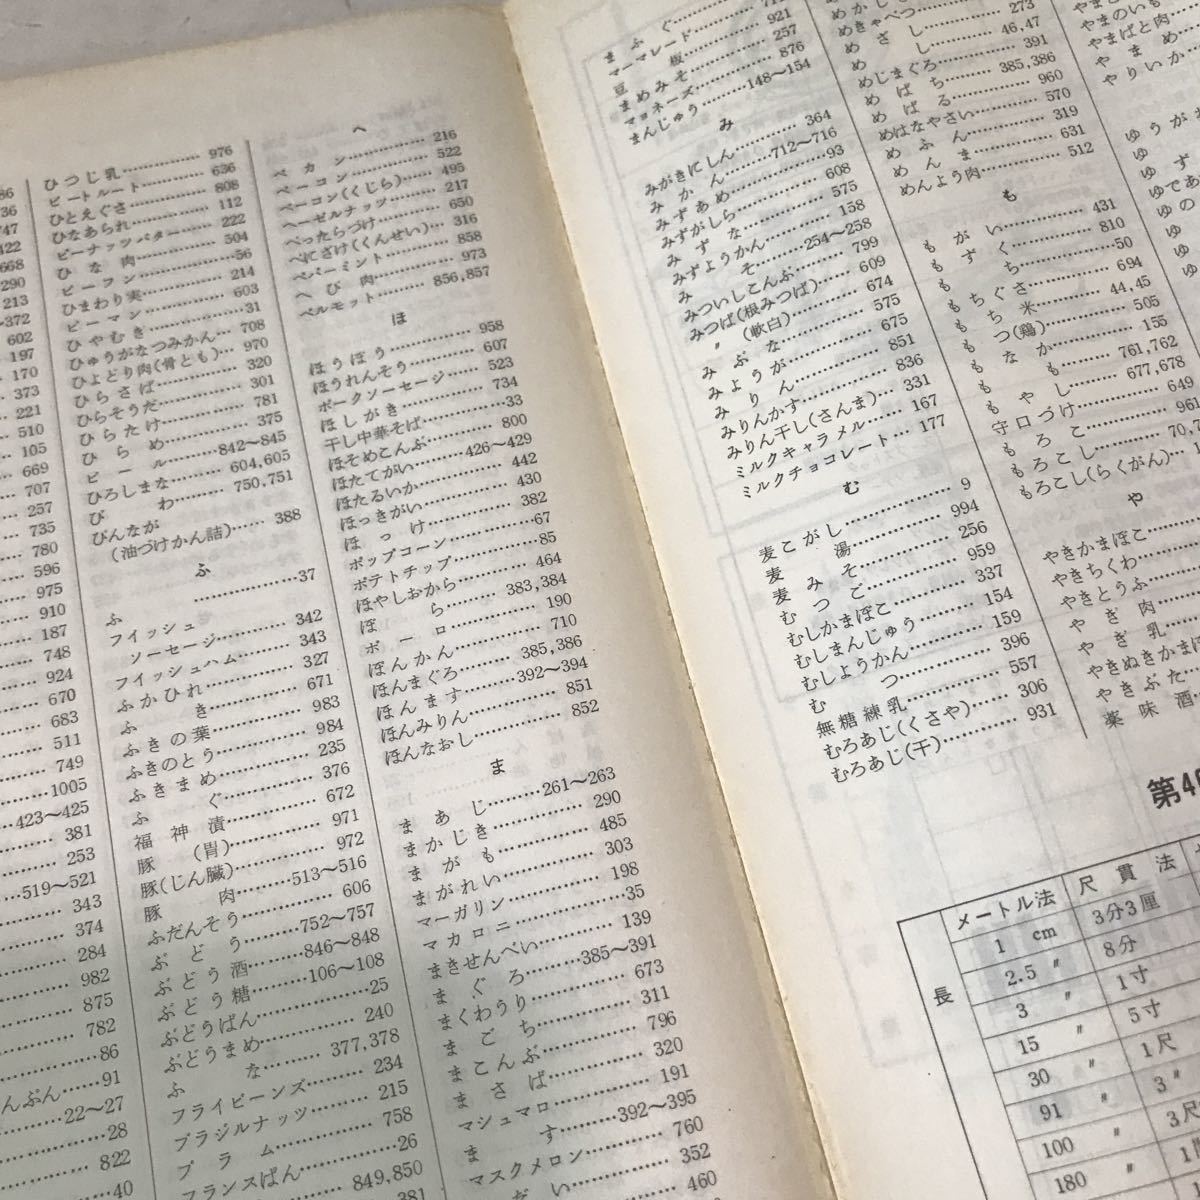 ひつじ乳 976
ビートルート 636
ひとえぐさ 808
ひなあられ 112
ピーナッツバター 222
ひな肉 504
ビーフン 56
ひまわり実 214
ピーマン 603
ひやむぎ 31
ひゅうがなつみかん 708
ひよどり肉(骨とも) 970
ひらさば 320
ひらそうだ 301
ひらたけ 781
ひらめ 375
ビール 842〜845
ひろしまな 604,605
びわ 750,751
びんなが
(油づけかん詰) 388
ふ
ふ 37
フィッシュ
ソーセージ 342
フィッシュハム 343
ふかひれ 327
ふき 671
ふきの葉 983
ふきのとう 984
ふきまめ 235
ふぐ 376
福神漬 672
豚(胃) 971
豚(じん臓) 972
豚肉 513〜516
ふだんそう 606
ぶどう 752〜757
ぶどう酒 846〜848
ぶどう糖 106〜108
ぶどうぱん 25
ぶどうまめ 240
ふな 377,378
フライビーンズ 234
ブラジルナッツ 215
プラム 758
フランスぱん 26
849,850
381
へ
ペカン 216
ベーコン 522
ベーコン(くじら) 495
ヘーゼルナッツ 217
べったらづけ 650
べにさけ(くんせい) 316
ペパーミント 858
へび肉 973
ベルモット 856,857
ほ
ほうぼう 958
ほうれんそう 607
ポークソーセージ 523
ほしがき 734
干し中華そば 33
ほそめこんぶ 800
ほたてがい 426〜429
ほたるいか 442
ほっきがい 430
ほっけ 382
ポップコーン 67
ポテトチップ 85
ほやしおから 464
ぼら 383,384
ボーロ 190
ぽんかん 710
ほんまぐろ 385,386
ほんます 392〜394
ほんみりん 851
ほんなおし 852
ま
まあじ 261〜263
まかじき 290
まがも 485
まがれい 303
マーガリン 198
マカロニ 35
まきせんべい 139
まぐろ 385〜391
まくわうり 673
まごち 311
まこんぶ 796
まさば 320
マシュマロ 191
ます 392〜395
マスクメロン 760
だい 352
460
まふぐ
マーマレード 921
豆板 257
まめみそ 876
マヨネーズ
まんじゅう 148〜154
み
みがきにしん 364
みかん 712〜716
みずあめ 93
みずがしら 608
みずな 575
みずようかん 158
みそ 254〜258
みついしこんぶ 799
みつば(根みつば) 609
〃(軟白) 674
みぶな 575
みょうが 675
みりん 851
みりんかす 836
みりん干し(さんま) 331
ミルクキャラメル 167
ミルクチョコレート 177
む
麦こがし 9
麦湯 994
麦みそ 256
むつご 959
むしかまぼこ 337
むしまんじゅう 154
むしようかん 159
むつ 396
無糖練乳 557
むろあじ(くさや) 306
むろあじ(干) 931
めかし
めきゃべつ 273
めざし 46,47
めし 391
めじまぐろ 385,386
めばち 960
めばる 570
めはなやさい 319
めふん 631
めんま 512
めんよう肉
も
もがい 431
もずく 810
もち 50
もちぐさ 694
もち米 44,45
もつ(鶏) 505
もなか 155
もも 761,762
もやし 677,678
守口づけ 649
もろこ 961
もろこし 70,
もろこし(らくがん)
や
やきかまぼこ
やきちくわ
やきとうふ
やぎ肉
やぎ乳
やきぬきかまぼ
やきぶた
薬味酒
やまのいも
やまばと肉
やまめ
やりいか
ゆうが
ゆず
ゆであ
ゆの
第4
長
メートル法 尺貫法
1 cm 3分3厘
2.5 〃 8分
3 〃 1寸
15 〃 5寸
30 〃 1尺
91 〃 3〃
100 〃 3尺
180 〃